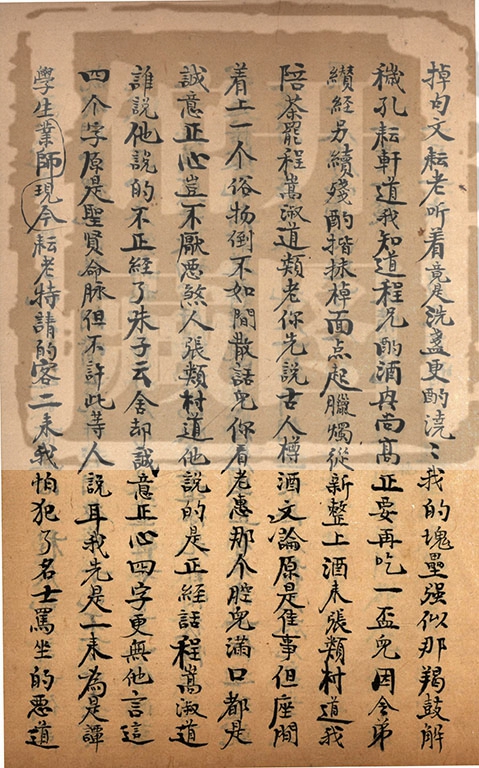 掉肉文耘老听着竟是洗盞更酌澆〻我的塊壘强似那羯鼓解
穢孔耘軒道我知道程兄酌酒興尚高正要再吃一盃兒因令弟
續經另續殘酌揩抹棹面点起臘燭從新整上酒来張類村道我
陪茶罷程嵩淑道類老你先説古人樽酒文論原是隹事但座間
着上一个俗物倒不如間散話兒你看老惠那个腔兒滿口都是
誠意正心豈不厭惡煞人張類村道他説的是正經話程嵩淑道
誰説他説的不正經了珠子云舍却誠意正心四字更無他言這
四个字原是聖賢命脉但不許此等人說耳我先是一来為是譚
學生業師現今耘老特請的客二来我怕犯了名士罵坐的惡道